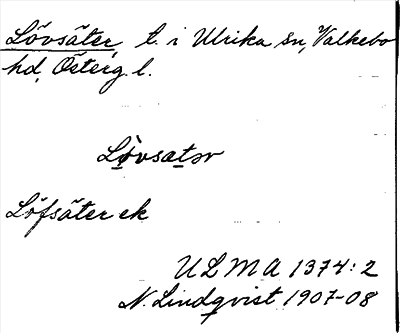 Lövsäter, t. i Ulrika sn, Valkebo
hd, Österg. l.
Lövsætər
Löfsäter ek
ULMA 1374:2
N. Lindqvist 1907-08